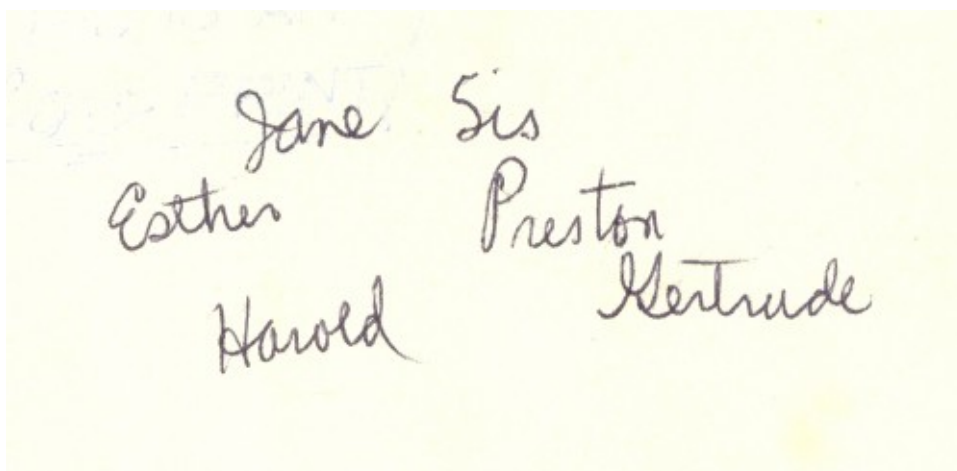 Jane Sis
Esther Preston
Gertrude
Harold